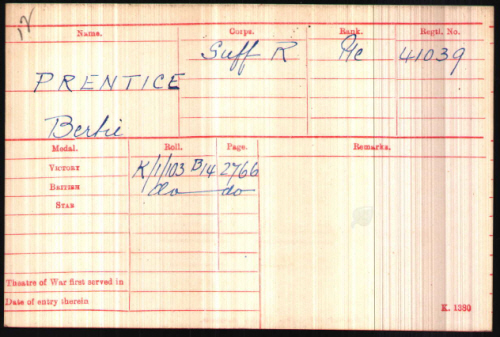 Name. Corps. Rank. Regtl. No.
Suff R Pte 41039
PRENTICE
Bertie
Medal. Roll. Page. Remarks.
VICTORY K/1/103 B14 2766
BRITISH do do
STAR
Theatre of War first served in
Date of entry therein
K. 1380